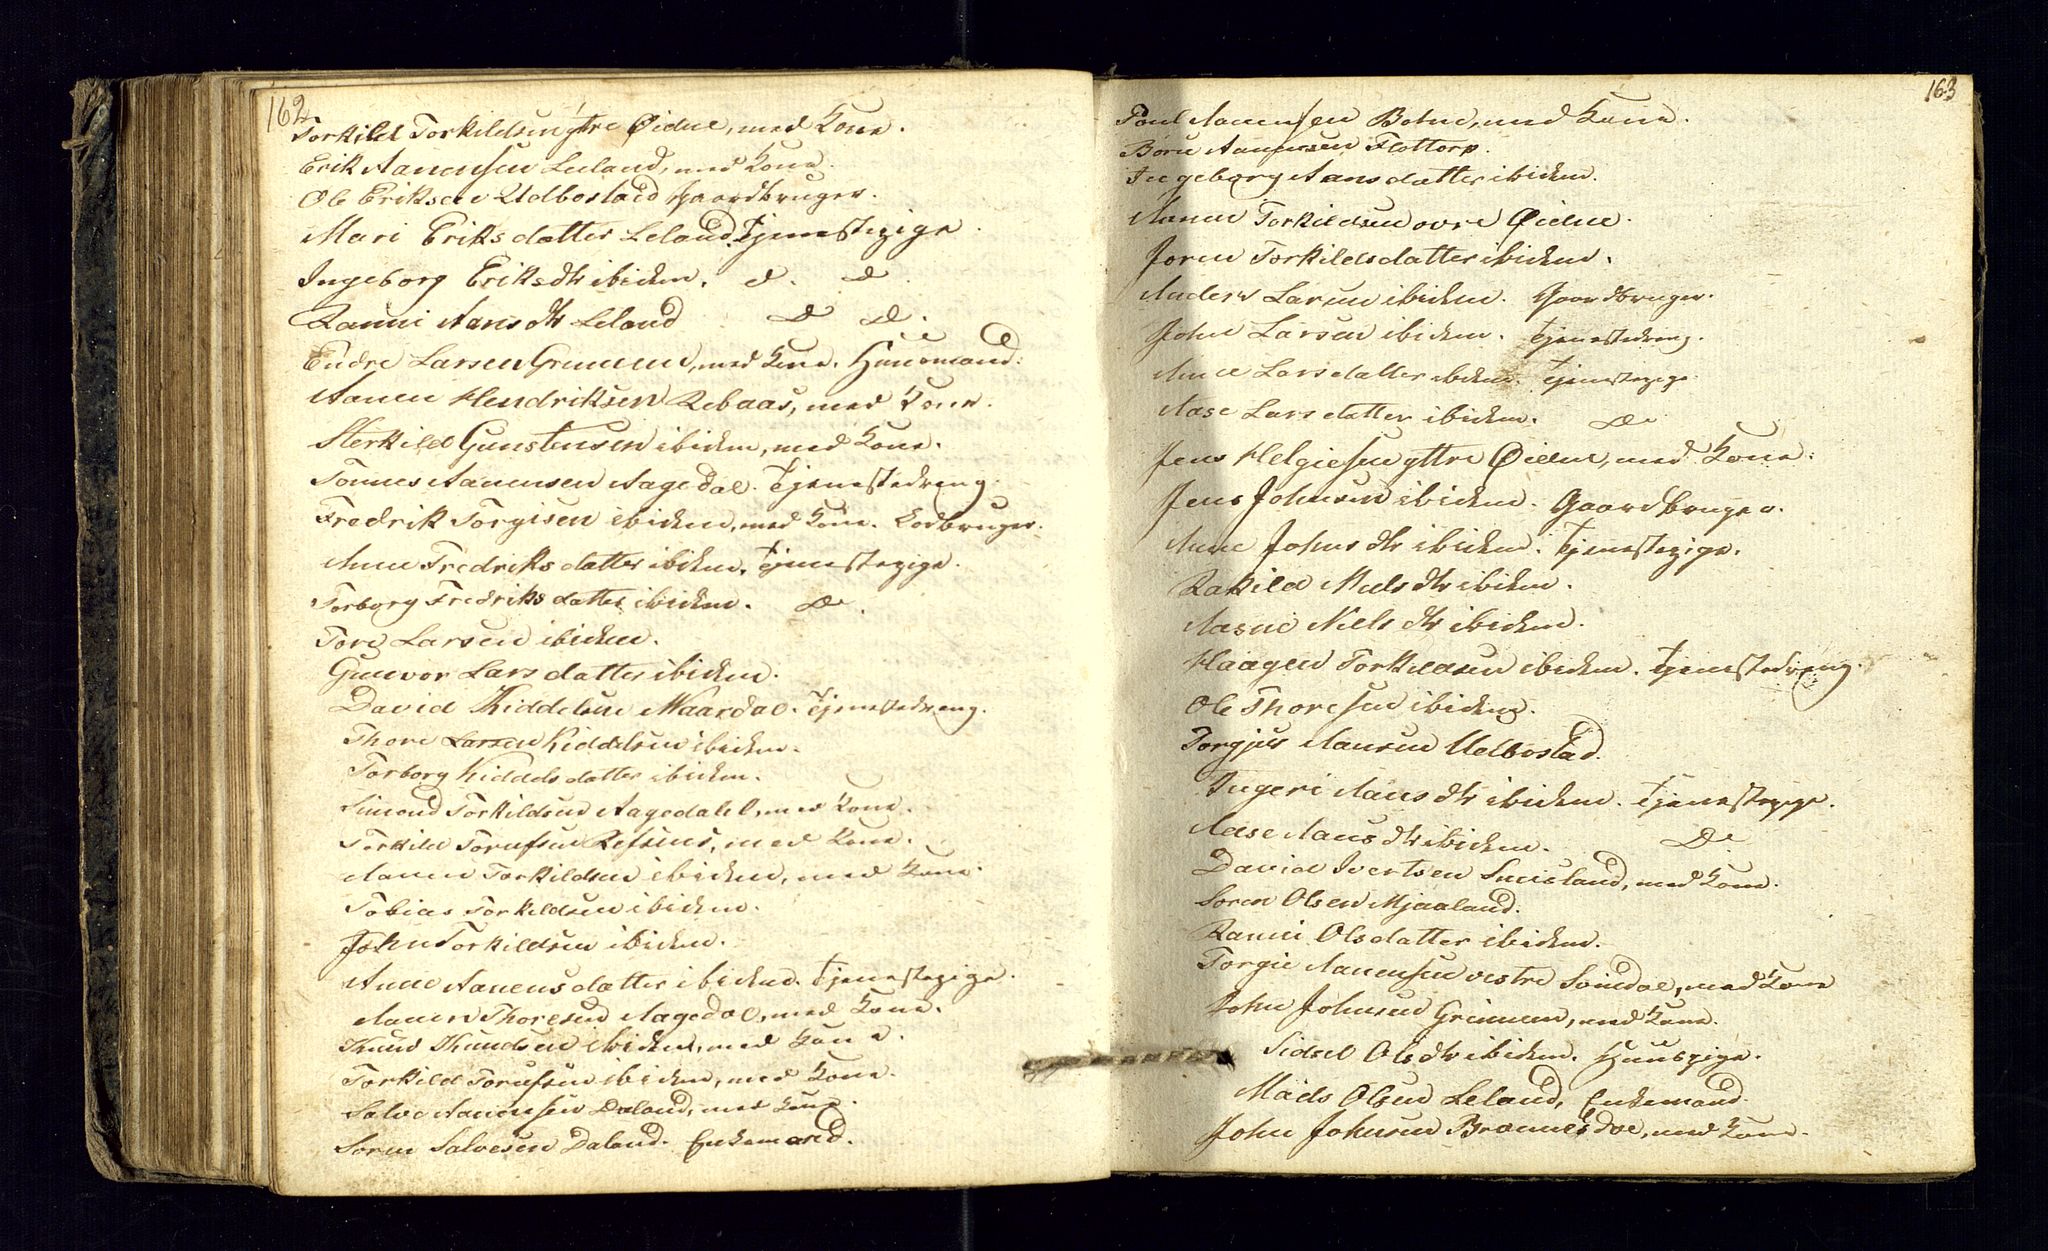 162
Torkild Torkildsen ytre Øidne, med Kone.
Erik Aanensen Leeland, med Kone.
Ole Eriksen Udbostad Gaardbruger.
Mari Eriksdatter Leland, Tjenestepige.
Ingeborg Eriksdtr ibidem. d. D.
Ranni Aansdtr Leland D D.
Endre Larsen Grummen, med Kone. Huusmand.
Aanen Hendriksen Rebaas, med Kone.
Sterkild Gunstensen ibidem, med Kone.
Tonnes Aanensen Aagedal. Tjenestedreng.
Fredrik Torgisen ibidem, med Kone. Lodbruger.
Anne Fredriksdatter ibidem. Tjenestepige.
Torborg Fredriksdatter ibidem. D.
Tore Larsen ibidem.
Gunvor Larsdatter ibidem.
David Kiddelsen Maardal. Tjenestedreng.
Thore Larsen Kiddelsen ibidem.
Torborg Kiddelsdatter ibidem.
Simond Torkildsen Aagedahl, med Kone.
Torkild Torufsen Refsnes, med Kone.
Aanen Torkildsen ibidem, med Kone.
Tobias Torkildsen ibidem.
John Torkildsen ibidem.
Anne Aanensdatter ibidem. Tjenestepige.
Aanen Thoresen Aagedal, med Kone.
Knud Knudsen ibidem, med Kone.
Torkild Torufsen ibidem, med Kone.
Salve Aanensen Daland, med Kone.
Soren Salvesen Daland. Enkemand.
163
Poul Aanensen Bohne, med Kone.
Boru Aanensen Flottorp.
Ingeborg Aansdatter ibidem.
Aanen Torkildsen ovre Øidne.
Joren Torkildsdatter ibidem.
Anders Larsen ibidem. Gaardbruger.
John Larsen ibidem. Tjenestedreng.
Anne Larsdatter ibidem. Tjenestepige.
Aase Larsdatter ibidem. D
Jens Helgiesen yttre Øidne, med Kone.
Jens Johnsen ibidem. Gaardbruger.
Anne Johnsdtr ibidem. Tjenestepige.
Rakild Nielsdtr ibidem.
Aasne Nielsdtr ibidem.
Haagen Torkildsen ibidem. Tjenestedreng.
Ole Thoresen ibidem.
Torgjus Aansen Udbostad.
Ingeri Aansdtr ibidem. Tjenestepige.
Aase Aansdtr ibidem. D
David Ivertsen Sneisland, med Kone.
Soren Olsen Mjaaland.
Ranni Olsdatter ibidem.
Torgie Aanensen vestre Soindal, med Kone
John Johnsen Grimmen, med Kone.
Sidsel Olsdtr ibidem. Huuspige.
Mads Olsen Leland, Enkemand.
John Johnsen Brannesdal, med Kone.